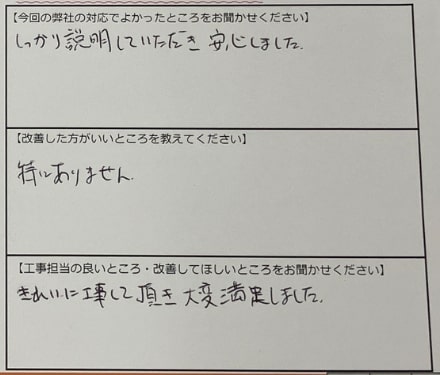 【今回の弊社の対応でよかったところをお聞かせください】
しっかり説明していただき安心しました.
【改善した方がいいところを教えてください】
特にありません.
【工事担当の良いところ・改善してほしいところをお聞かせください】
きれいに工事して頂き大変満足しました.